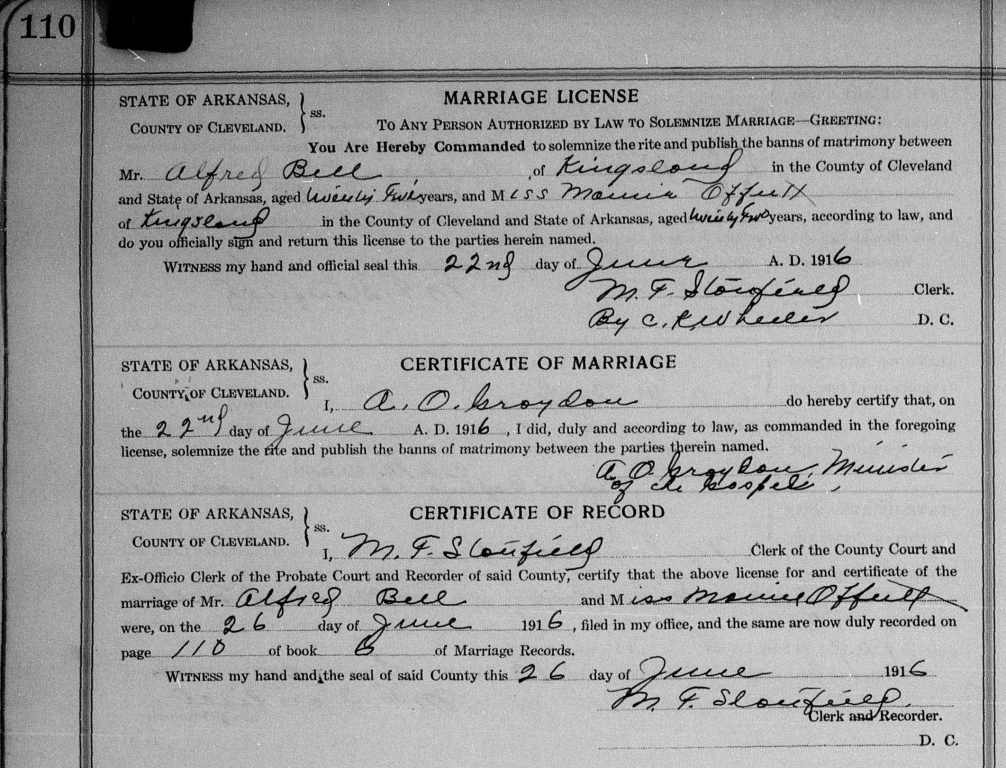 110
STATE OF ARKANSAS, } ss. MARRIAGE LICENSE
COUNTY OF CLEVELAND. TO ANY PERSON AUTHORIZED BY LAW TO SOLEMNIZE MARRIAGE—GREETING:
You Are Hereby Commanded to solemnize the rite and publish the banns of matrimony between
Mr. Alfred Bell, of Kingsland in the County of Cleveland
and State of Arkansas, aged twenty Two years, and Miss Mamie Offutt
of Kingsland in the County of Cleveland and State of Arkansas, aged twenty Two years, according to law, and
do you officially sign and return this license to the parties herein named.
WITNESS my hand and official seal this 22nd day of June A. D. 1916
M. F. Stanfield Clerk.
By C. R. Wheeler D. C.
STATE OF ARKANSAS, } ss. CERTIFICATE OF MARRIAGE
COUNTY OF CLEVELAND.
I, A. O. Graydon do hereby certify that, on
the 22nd day of June A. D. 1916, I did, duly and according to law, as commanded in the foregoing
license, solemnize the rite and publish the banns of matrimony between the parties therein named.
A O. Graydon, Minister
of the Gospel,
STATE OF ARKANSAS, } ss. CERTIFICATE OF RECORD
COUNTY OF CLEVELAND.
I, M. F. Stanfield Clerk of the County Court and
Ex-Officio Clerk of the Probate Court and Recorder of said County, certify that the above license for and certificate of the
marriage of Mr. Alfred Bell and Miss Mamie Offutt
were, on the 26 day of June 1916, filed in my office, and the same are now duly recorded on
page 110 of book of Marriage Records.
WITNESS my hand and the seal of said County this 26 day of June 1916
M. F. Stanfield.
Clerk and Recorder.
D. C.